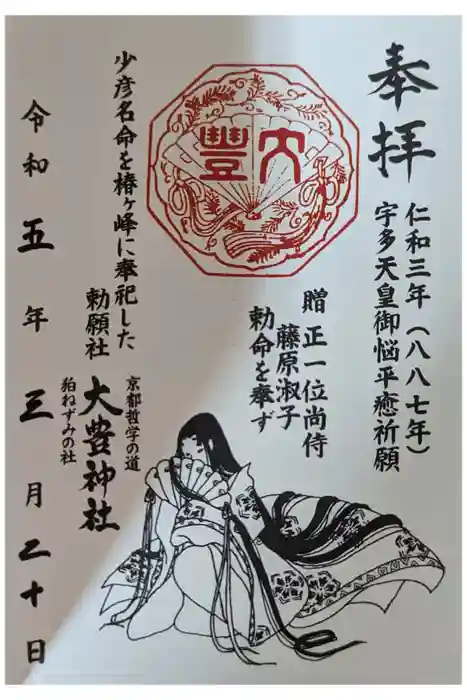 奉拝
仁和三年（八八七年）
宇多天皇御悩平癒祈願
大豊
贈 正一位尚侍
藤原淑子
勅命を奉ず
少彦名命を椿ヶ峰に奉祀した
勅願社
京都哲学の道
大豊神社
狛ねずみの社
令和五年三月二十日